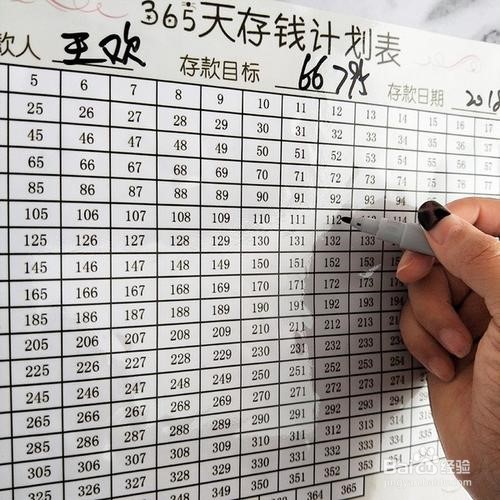 365天存钱计划表
款人 王欢 存款目标 66795 存款日期 2018
5 6 7 8 9 10 11 12 13 14 15 16 17
25 26 27 28 29 30 31 32 33 34 35 36 37
45 46 47 48 49 50 51 52 53 54 55 56 57
65 66 67 68 69 70 71 72 73 74 75 76 77
85 86 87 88 89 90 91 92 93 94
105 106 107 108 109 110 111 112 114
125 126 127 128 129 130 131 132 133
145 146 147 148 149 150 151 152 153
165 166 167 168 169 170 171 172 173
185 186 187 188 189 190 191 192 193 194
205 206 207 208 209 210 211 212 213
225 226 227 228 229 230 231 232 233 234
245 246 247 248 249 250 251 252 253 254
265 266 267 268 269 270 271 272 273 274
285 286 287 288 289 290 291 292 293 294
305 306 307 308 309 310 311 312 313 314 315
325 326 327 328 329 330 331 332 333 334 335
348 349 350 351 352 353
365
Baidu经验